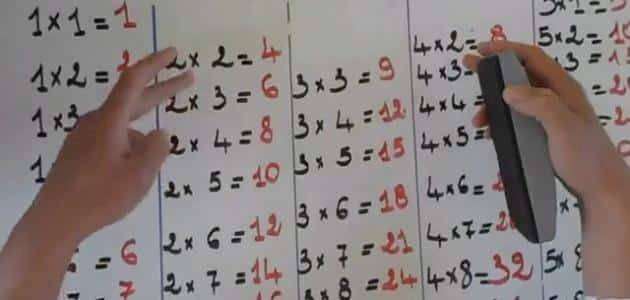 1 × 1 = 1
1 × 2 =
1 × 3
1
= 6
= 7
2 × 2 = 4
2 × 3 = 6
2 × 4 = 8
2 × 5 = 10
2 × 6 = 12
2 × 7 = 14
3 × 3 = 9
3 × 4 = 12
3 × 5 = 15
3 × 6 = 18
3 × 7 = 21
3 × 8 = 24
4 × 2 = 8
4 × 3 =
4 × 4 =
4 × 5 =
4 × 6 =
4 × 7 = 2
4 × 8 = 32
5 × 1 =
5 × 2 = 10
× 3 = 1
5 × 8